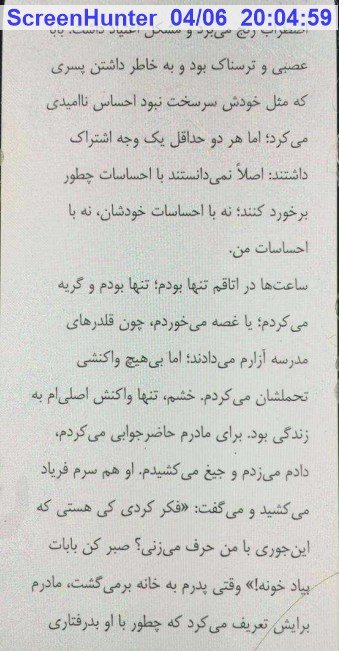 ScreenHunter 04/06 20:04:59
اضطراب رنج می‌برد و مشکل اعتیاد داشت. بابا
عصبی و ترسناک بود و به خاطر داشتن پسری
که مثل خودش سرسخت نبود احساس ناامیدی
می‌کرد؛ اما هر دو حداقل یک وجه اشتراک
داشتند: اصلاً نمی‌دانستند با احساسات چطور
برخورد کنند؛ نه با احساسات خودشان، نه با
احساسات من.
ساعت‌ها در اتاقم تنها بودم؛ تنها بودم و گریه
می‌کردم؛ یا غصه می‌خوردم، چون قلدرهای
مدرسه آزارم می‌دادند؛ اما بی‌هیچ واکنشی
تحملشان می‌کردم. خشم، تنها واکنش اصلی‌ام به
زندگی بود. برای مادرم حاضرجوابی می‌کردم،
دادم می‌زدم و جیغ می‌کشیدم. او هم سرم فریاد
می‌کشید و می‌گفت: «فکر کردی کی هستی که
این‌جوری با من حرف می‌زنی؟ صبر کن بابات
بیاد خونه!» وقتی پدرم به خانه برمی‌گشت، مادرم
برایش تعریف می‌کرد که چطور با او بدرفتاری